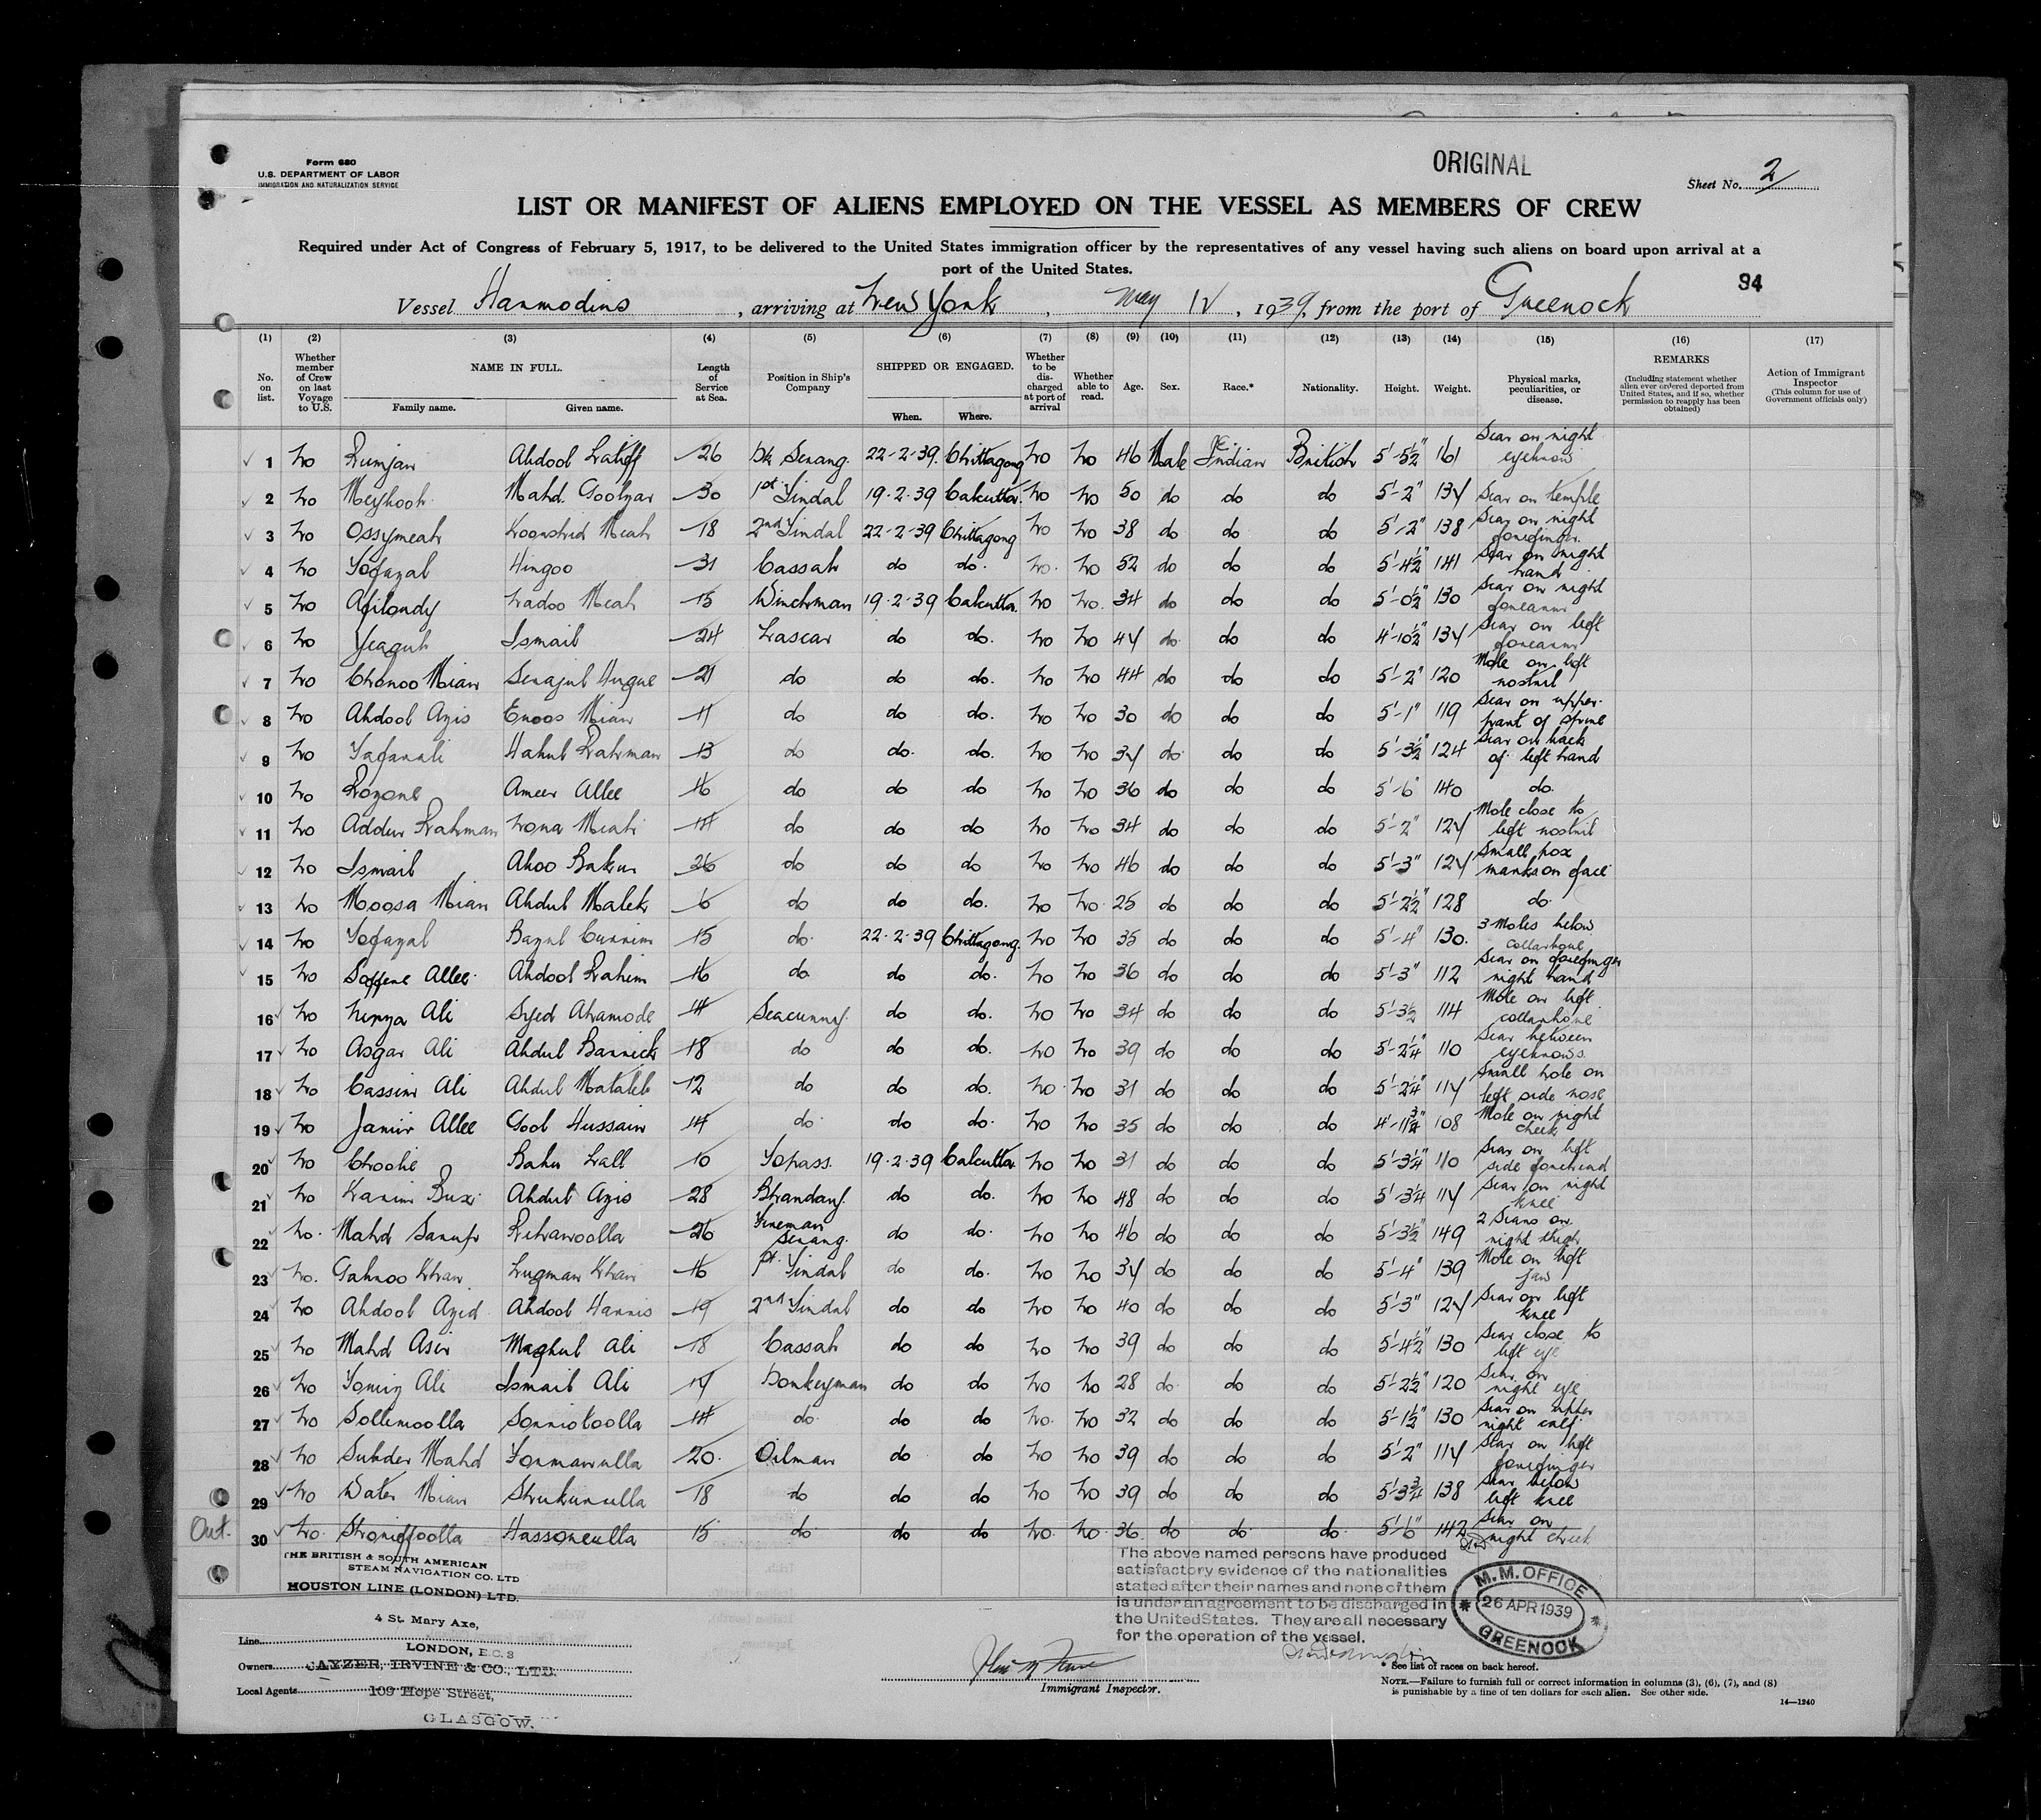 Form 680
U.S. DEPARTMENT OF LABOR
IMMIGRATION AND NATURALIZATION SERVICE
ORIGINAL
Sheet No. 2
LIST OR MANIFEST OF ALIENS EMPLOYED ON THE VESSEL AS MEMBERS OF CREW
Required under Act of Congress of February 5, 1917, to be delivered to the United States immigration officer by the representatives of any vessel having such aliens on board upon arrival at a
port of the United States.
94
Vessel Harmodius, arriving at New York, May 12, 1939, from the port of Greenock
(1) (2) (3) (4) (5) (6) (7) (8) (9) (10) (11) (12) (13) (14) (15) (16) (17)
No. on list.
Whether member of Crew on last Voyage to U.S.
NAME IN FULL.
Family name. Given name.
Length of Service at Sea.
Position in Ship's Company
SHIPPED OR ENGAGED.
When. Where.
Whether to be discharged at port of arrival
Whether able to read.
Age. Sex. Race.* Nationality. Height. Weight.
Physical marks, peculiarities, or disease.
REMARKS
(Including statement whether alien ever ordered deported from United States, and if so, whether permission to reapply has been obtained)
Action of Immigrant Inspector
(This column for use of Government officials only)
1 No Rumjan Abdool Latiff 26 Dk Serang. 22-2-39. Chittagong No No 46 Male Indian British 5'-5½" 161 Scar on right eyebrow
2 No Mahd. Goolzar 30 1st Tindal 19.2.39 Calcutta. No No 50 do do do 5'-2" 134 Scar on temple
3 No Ossymeah Koorshid Meah 18 2nd Tindal 22-2-39 Chittagong No No 38 do do do 5'-2" 138 Scar on right forefinger.
4 No Tofazal Hingoo 31 Cassab do do. No. No 52 do do do 5'-4½" 141 Scar on right hand
5 No Nadoo Meah 15 Winchman 19.2.39 Calcutta. No No. 34 do do do 5'-0½" 130 Scar on right forearm
6 No Yeaqub Ismail 24 Lascar do do. No No 44 do do do 4'-10½" 134 Scar on left forearm
7 No Chonoo Mian Serajul Huque 21 do do do. No No 44 do do do 5'-2" 120 Mole on left nostril
8 No Abdool Azis Enoos Mian 11 do do do. No No 30 do do do 5'-1" 119 Scar on upper part of spine
9 No Habul Rahman 13 do do. do No No 34 do do do 5'-3½" 124 Scar on back of left hand
10 No Ameer Allee 16 do do do No No 36 do do do 5'-6" 140 do.
11 No Addur Rahman Nona Meah 14 do do do No No 34 do do do 5'-2" 124 Mole close to left nostril
12 No Ismail Aboo Baker 26 do do do No No 46 do do do 5'-3" 124 Small pox marks on face
13 No Moosa Mian Abdul Malek 6 do do do. No No 25 do do do 5'-2½" 128 do.
14 No Tofazal Bazul Currim 15 do. 22.2.39 Chittagong. No No 35 do do do 5'-4" 130. 3 Moles below collarbone
15 No Abdool Rahim 16 do. do do. No No 36 do do do 5'-3" 112 Scar on forefinger right hand
16 No Ali Syed Ahamode 14 Seacunny. do do. No No 34 do do do 5'-3½ 114 Mole on left collarbone
17 No Asgar Ali Abdul Barrick 18 do do do. No No 39 do do do 5'-2¼" 110 Scar between eyebrows.
18 No Cassim Ali Abdul Matalib 12 do do do. No. No 31 do do do 5'-2¼" 114 Small hole on left side nose
19 No Jamir Allee Gool Hussain 14 do. do do. No No 35 do do do 4'-11¾" 108 Mole on right cheek
20 No Choolie Babu Lall 10 Topass. 19.2.39 Calcutta. No No 31 do do do 5'-3¼" 110 Scar on left side forehead
21 No Karim Bux Abdul Azis 28 Bhandary. do do. No No 48 do do do 5'-3¼ 114 Scar on right knee
22 No. Mahd 26 Fireman Serang. do do. No No 46 do do do 5'-3½" 149 2 Scars on right thigh
23 No. Gabroo Khan Lugman Khan 16 1st. Tindal do do. No No 34 do do do 5'-4" 139 Mole on left jaw
24 No Abdool Azid Abdool Hannis 19 2nd Tindal do do No No 40 do do do 5'-3" 124 Scar on left knee
25 No Mahd Asir Maqbul Ali 18 Cassab do do No No 39 do do do 5'-4½" 130 Scar close to left eye
26 No Ali Ismail Ali 14 Donkeyman do do No No 28 do do do 5'-2½" 120 Scar on right eye
27 No Sollimoolla 14 do. do do No. No 32 do do do 5'-1½" 130 Scar on upper right calf
28 No Mahd 20. Oilman do do No No 39 do do do 5'-2" 114 Scar on left forefinger
29 No Mian Shukurulla 18 do do do No No 39 do do do 5'-3¾ 138 Scar below left knee
Out. 30 No. Hassoneulla 15 do do do No. No. 36 do do. do. 5'-6" 142 Scar on right cheek
THE BRITISH & SOUTH AMERICAN
STEAM NAVIGATION CO. LTD
HOUSTON LINE (LONDON) LTD.
4 St. Mary Axe,
Line
LONDON, E.C. 3
Owners CAYZER, IRVINE & CO., LTD.
Local Agents 109 Hope Street,
GLASGOW.
The above named persons have produced
satisfactory evidence of the nationalities
stated after their names and none of them
is under an agreement to be discharged in
the United States. They are all necessary
for the operation of the vessel.
M.M. OFFICE
26 APR 1939
GREENOCK
Immigrant Inspector.
* See list of races on back hereof.
NOTE.—Failure to furnish full or correct information in columns (3), (6), (7), and (8)
is punishable by a fine of ten dollars for each alien. See other side.
14—1240